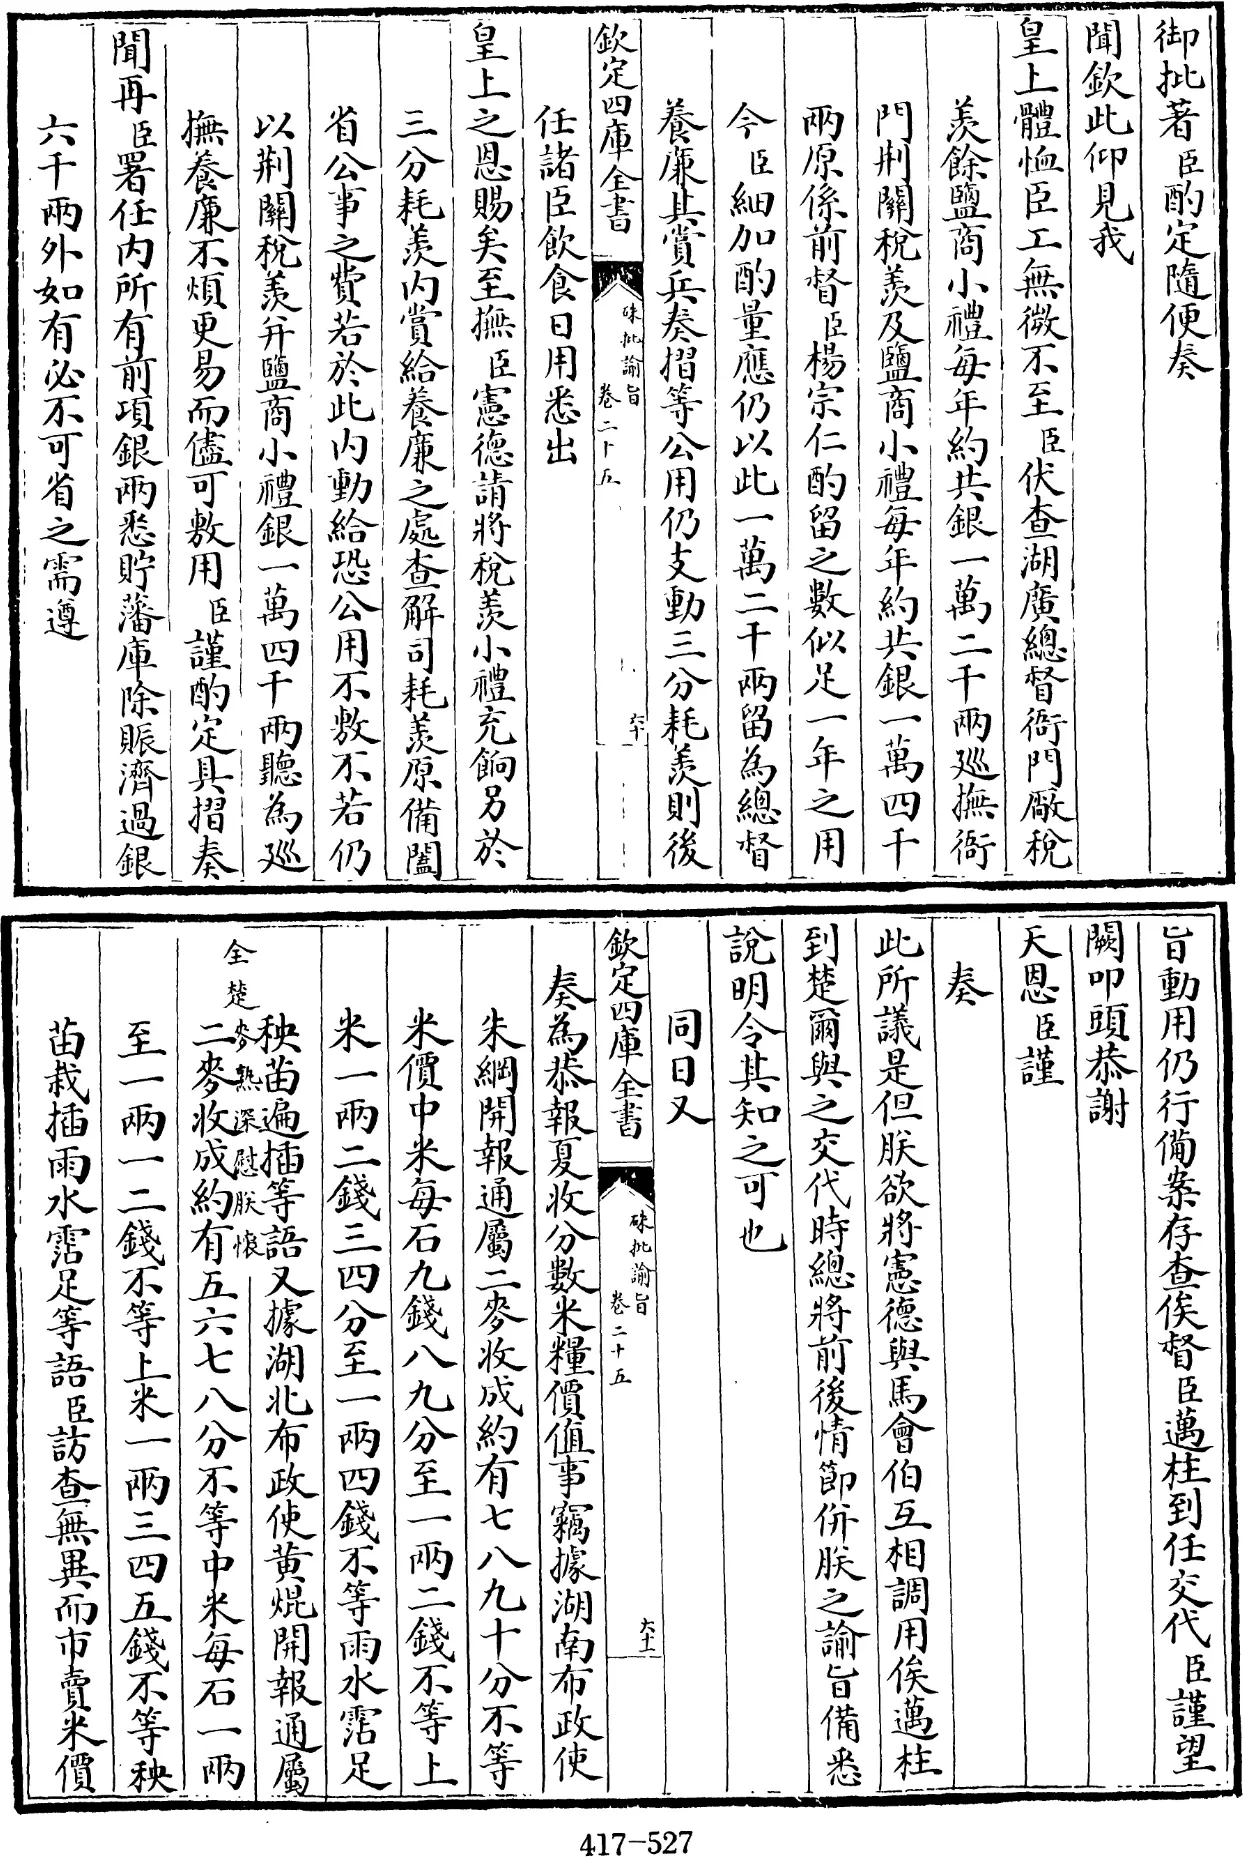 御批著臣酌定隨便奏
聞欽此仰見我
皇上體恤臣工無微不至臣伏查湖廣總督衙門廠稅
羨餘鹽商小禮每年約共銀一萬二千兩巡撫衙
門荆關稅羨及鹽商小禮每年約共銀一萬四千
兩原係前督臣楊宗仁酌留之數似足一年之用
今臣細加酌量應仍以此一萬二千兩留為總督
養廉其賞兵奏摺等公用仍支動三分耗羨則後
欽定四庫全書
硃批諭旨
卷二十五
六十
任諸臣飲食日用悉出
皇上之恩賜矣至撫臣憲德請將稅羨小禮充餉另於
三分耗羨内賞給養廉之處查解司耗羨原備闔
省公事之費若於此内動給恐公用不敷不若仍
以荆關稅羨并鹽商小禮銀一萬四千兩聽為廵
撫養廉不煩更易而儘可敷用臣謹酌定具摺奏
聞再臣署任内所有前項銀兩悉貯藩庫除賑濟過銀
六千兩外如有必不可省之需遵
旨動用仍行備案存查俟督臣邁柱到任交代臣謹望
闕叩頭恭謝
天恩臣謹
奏
此所議是但朕欲將憲德與馬會伯互相調用俟邁柱
到楚爾與之交代時總將前後情節併朕之諭旨備悉
說明令其知之可也
同日又
欽定四庫全書
硃批諭旨
卷二十五
六十一
奏為恭報夏收分數米糧價值事竊據湖南布政使
朱綱開報通屬二麥收成約有七八九十分不等
米價中米每石九錢八九分至一兩二錢不等上
米一兩二錢三四分至一兩四錢不等雨水霑足
秧苗遍插等語又據湖北布政使黄焜開報通屬
全楚麥熟深慰朕懷
二麥收成約有五六七八分不等中米每石一兩
至一兩一二錢不等上米一兩三四五錢不等秧
苗栽插雨水霑足等語臣訪查無異而市賣米價
417-527